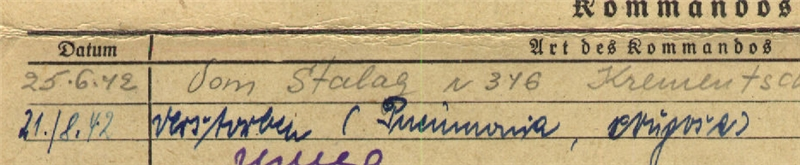 Kommandos
Datum Art des Kommandos
25.6.42 Vom Stalag 346 Krementsc
21./8.42 Verstorben (Pneumonia,